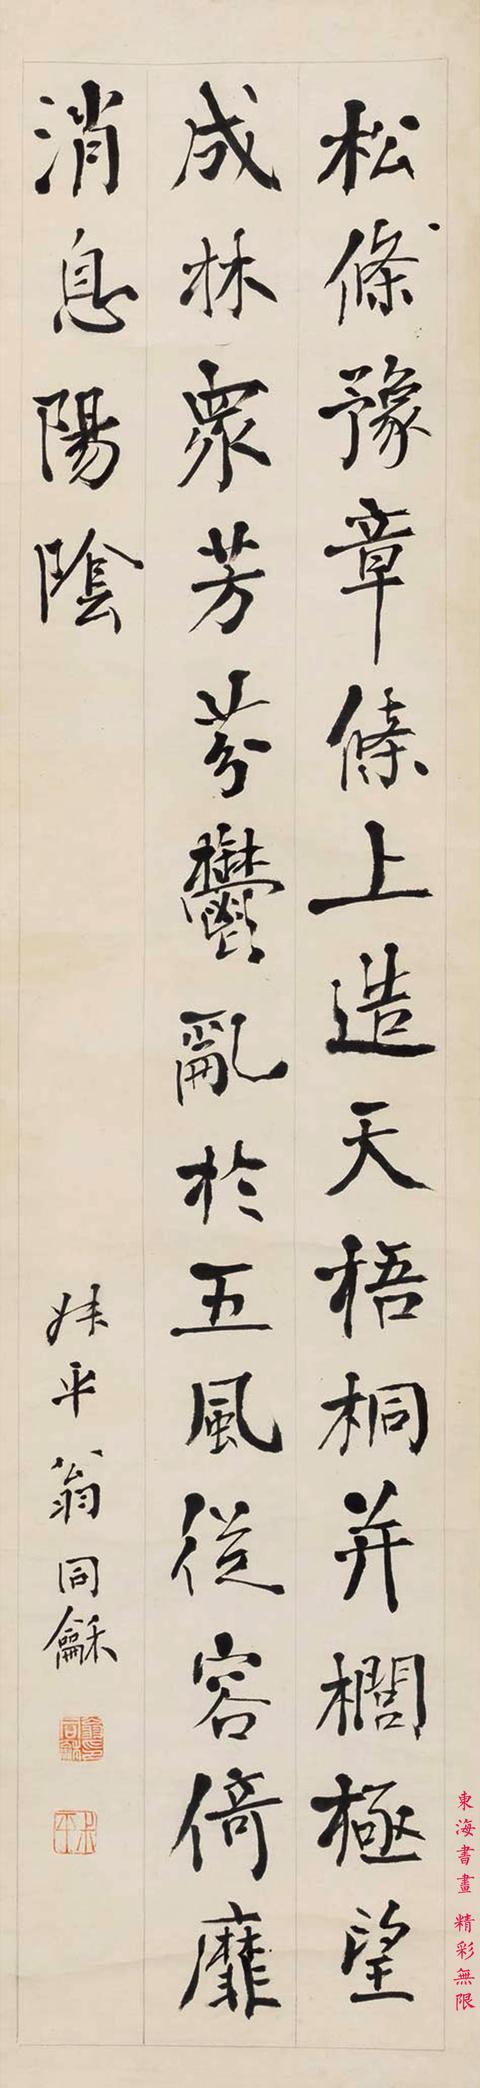 松條豫章條上造天梧桐并櫚極望
成林衆芳芬鬱亂於五風從容倚靡
消息陽陰
叔平翁同龢
翁同龢印
叔平
東海書畫 精彩無限